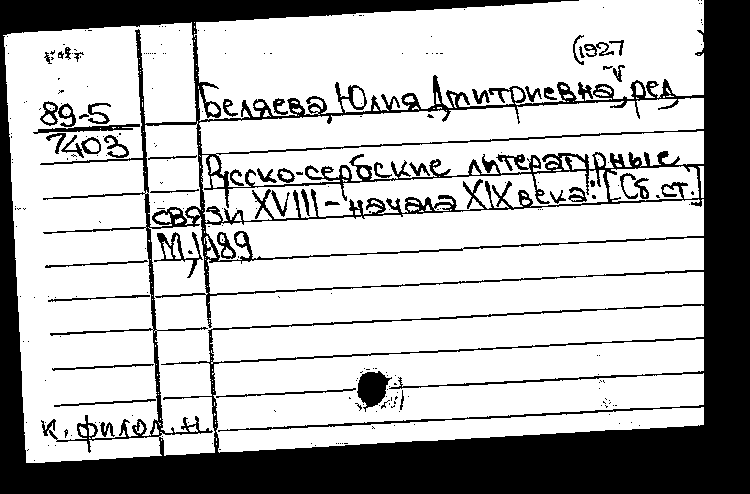 (1927 )
89-5
Беляева, Юлия Дмитриевна, ред.
7403
Русско-сербские литературные
связи XVIII - начала XIX века: [Сб. ст.]
М., 1989.
к. филол. н.